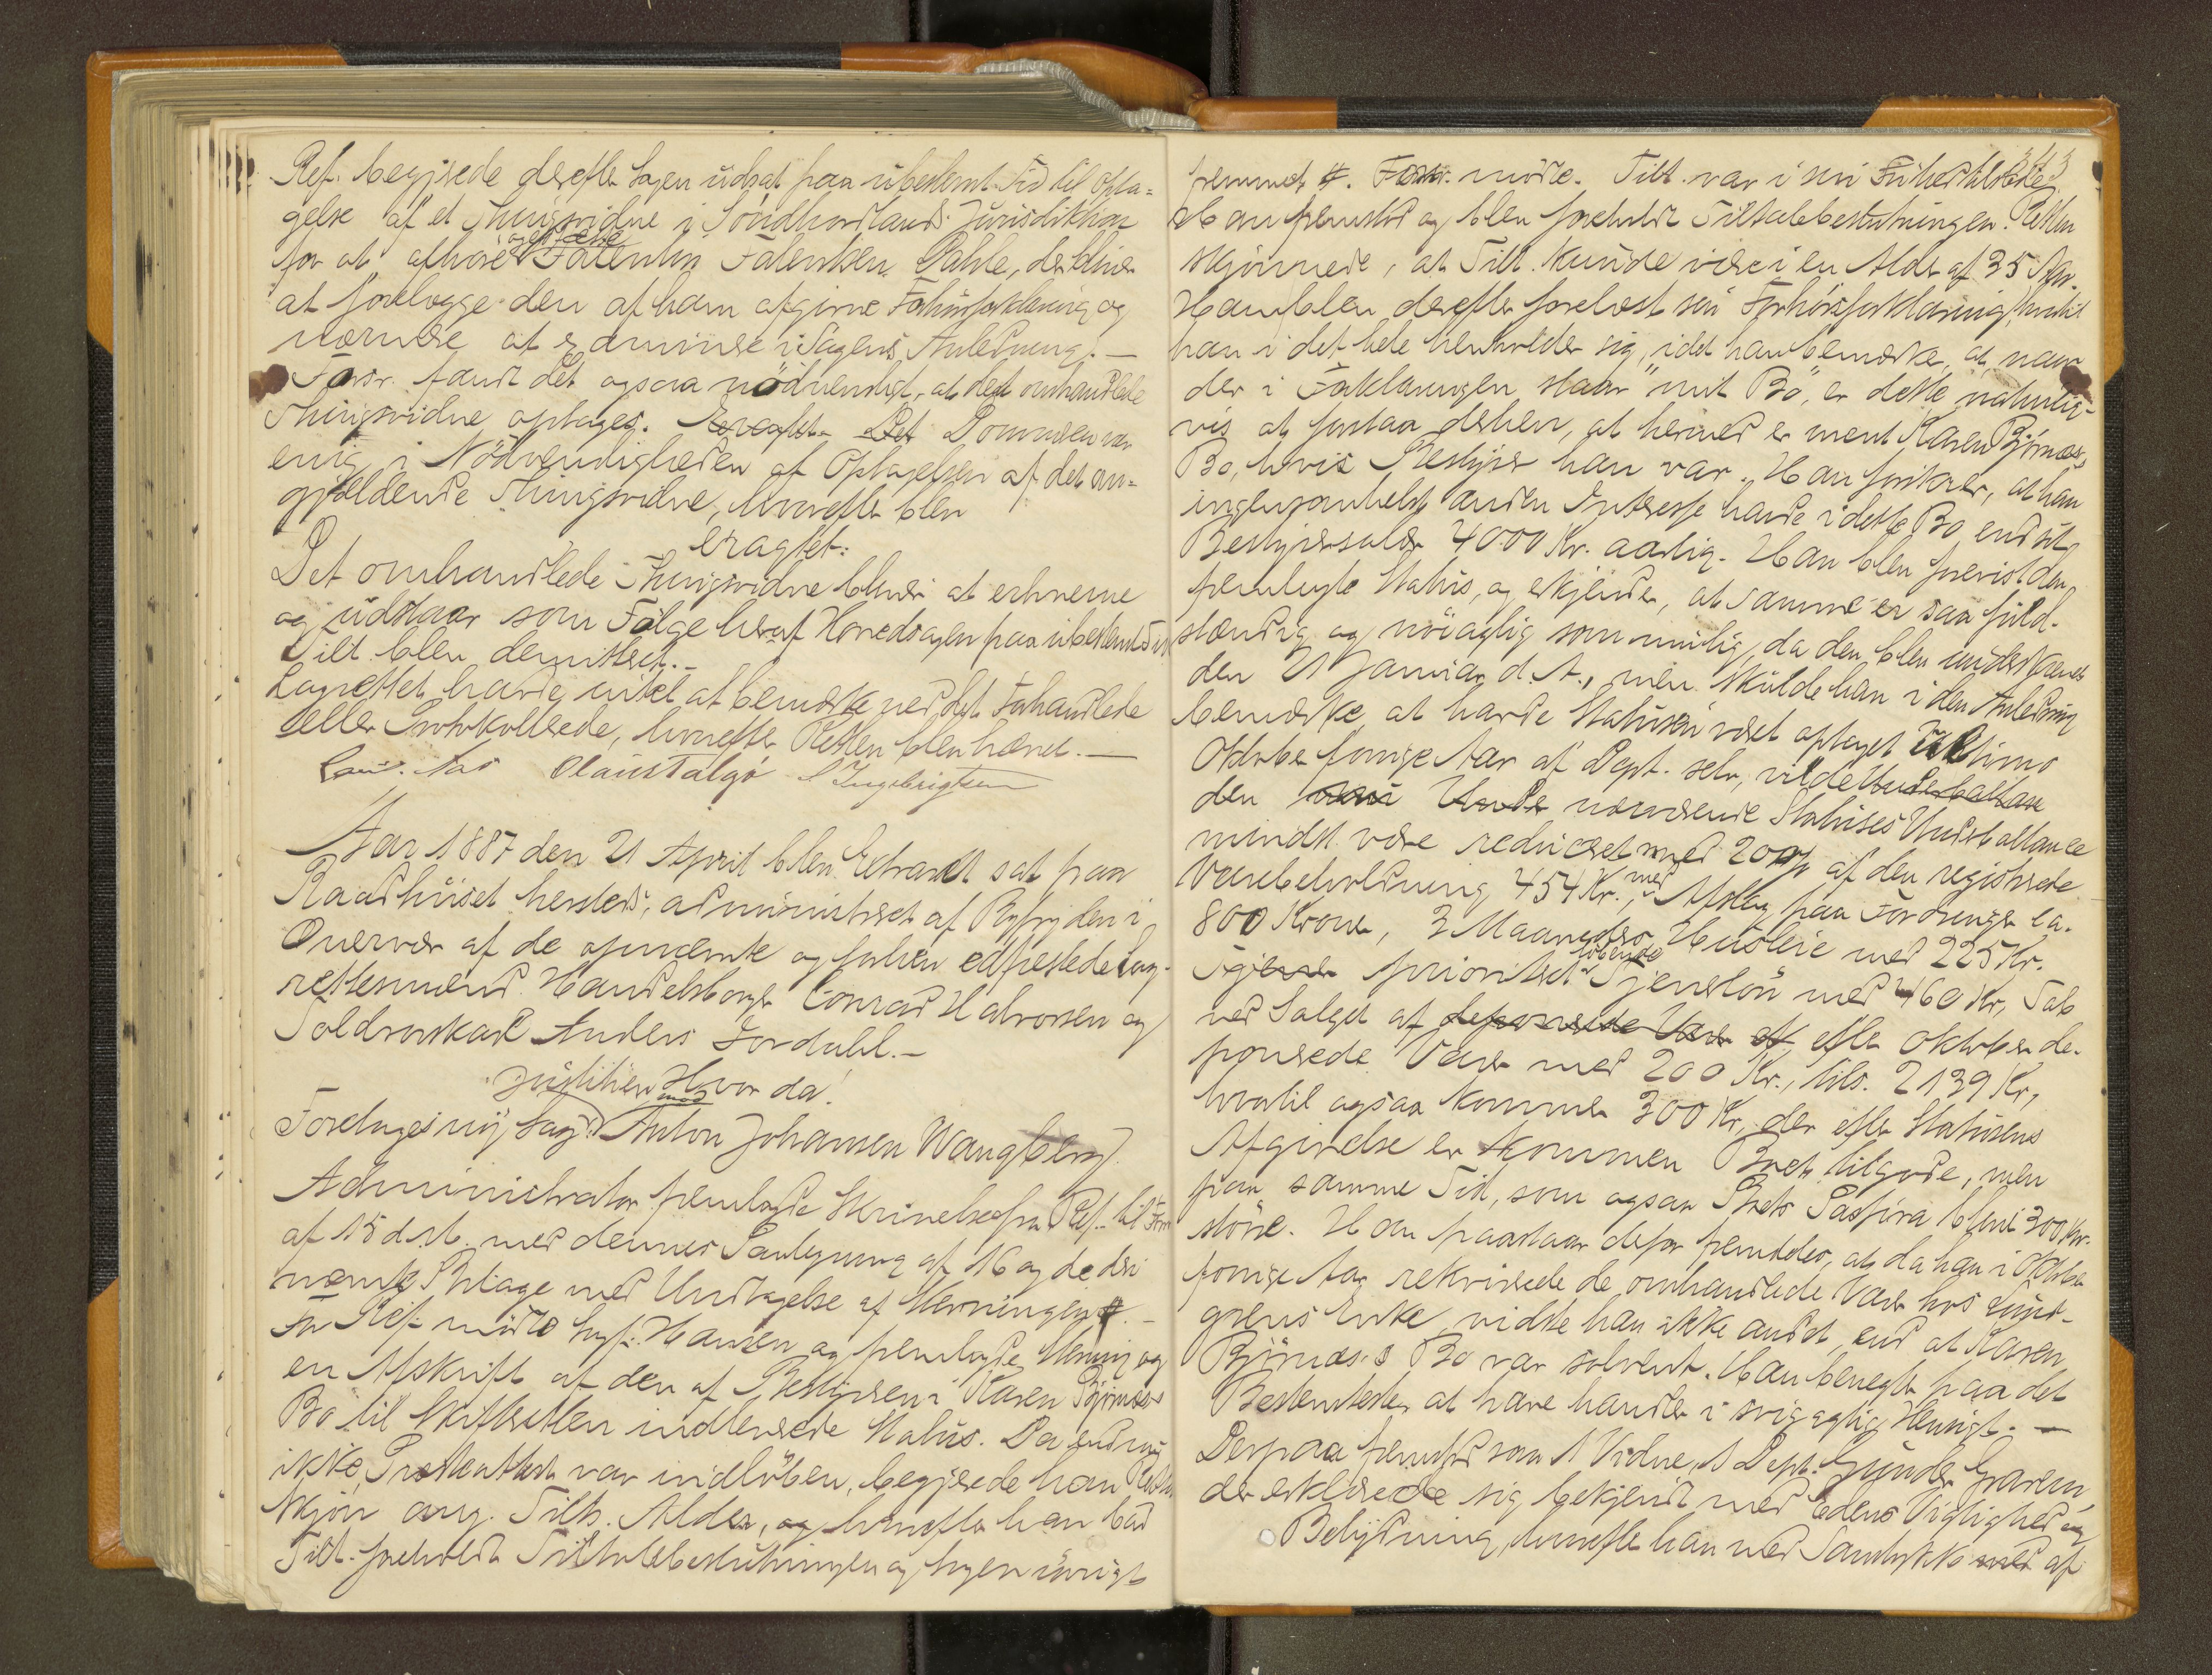 Ref. begjærede derefter Sagen udsat paa ubestemt Tid til Opta-
gelse af et Thingsvidne i Söndhordlands Jurisdiktion
for at afhöre og edfæste Falentin Falentsen Dahle, der bliver
at forelægge den af ham afgivne Forhörsforklaring og
nærmere at examinere i Sagens Anledning. —
Forsv. fandt det ogsaa nödvendigt, at det omhandlede
Thingsvidne optages. Eragtet Det Dommeren var
enig i Nödvendigheden af Optagelsen af det an-
gjældende Thingsvidne, hvorefter blev
eragtet:
Det omhandlede Thingsvidne bliver at erhverve
og udstaar som Fölge heraf Hovedsagen paa ubestemt Tid
Tilt. blev demitteret. —
Lagrettet havde intet at bemærke ved det Forhandlede
eller Protokollerede, hvorefter Retten blev hævet. —
Olaus Talgö Ingebrigtsen
Aar 1887 den 21 April blev Extraret sat paa
Raadhuset hersteds, administreret af Byfogden i
Overvær af de opnævnte og forhen edfæstede Lag-
rettesmænd Handelsborger Conrad Halvorsen og
Toldrorskarl Anders Jordahl. —
Hvor da!
Foretages ny Sag: Justitien mod Anton Johansen Wangberg.
Administrator fremlagde Skrivelse fra Ref. til Forsv.
af 15 d.M. med dennes Paategning af 16 og de deri
nævnte Bilage med Undtagelse af Stevningen #. —
For Ref. mödte Sagf. Hansen og fremlagde Stevning og
en Afskrift af den af Bestyreren i Karen Björnæs's
Bo til Skifteretten indleverede Status. Da endnu
ikke Presteattest var indlöben, begjærede han Rettens
Skjön ang. Tilt. Alder, og hvorefter han bad
Tilt. foreholdt Tiltalebeslutningen og Sagen iövrigt
fremmet #. Forsv. mödte. Tilt. var i sin Frihed tilstede.
Han fremstod og blev foreholdt Tiltalebeslutningen. Retten
skjönnede, at Tilt. kunde være i en Alder af 35 Aar.
Han blev derefter forelæst sin Forhörsforklaring, hvortil
han i det hele henholder sig, idet han bemærker, at naar
der i Forklaringen staar "mit Bo", er dette naturlig-
vis at forstaa derhen, at hermed er ment Karen Björnæs's
Bo, hvis Bestyrer han var. Han forsikrer, at han
ingensomhelst anden Interesse havde i dette Bo end sit
Bestyrersalær 4000 Kr. aarlig. Han blev forevist den
fremlagte Status, og erkjender, at samme er saa fuld-
stændig og nöiagtig som mulig, da den blev underskrevet
den 21 Januar d. A., men skulde han i den Anledning
bemærke, at havde Statusen været optaget Ultimo
Oktober forrige Aar af Dept. selv, vilde Underballance
den nærværende Statuses Underballance
mindst være reduceret med 20% af den registrerede
Varebeholdning 454 Kr., med Afslag paa Fordringer ca.
800 Kroner, 3 Maaneders Husleie med 225 Kr.
Tjener prioriteret löbende Tjenerlön med 460 Kr, Tab
ved Salget af deponerede Varer af efter Oktober de-
ponerede Varer med 200 Kr., tils. 2139 Kr,
hvortil ogsaa kommer 300 Kr., der efter Statusens
Afgivelse er kommen Boet tilgode, men
paa samme Tid, som ogsaa Boets Passiva blev 300 Kr.
större. Han paastaar derfor fremdeles, at da han i Oktober
forrige Aar rekvirerede de omhandlede Varer hos Lund-
grens Enke, vidste han ikke andet, end at Karen
Björnæs's Bo var solvent. Han benegter paa det
Bestemteste, at have handlet i svigagtig Hensigt. —
Derpaa fremstod som 1 Vidne, Dept. Gunder Gravem,
der erklærede sig bekjendt med Edens Vigtighed og
Betydning, hvorefter han med Samtykke med af